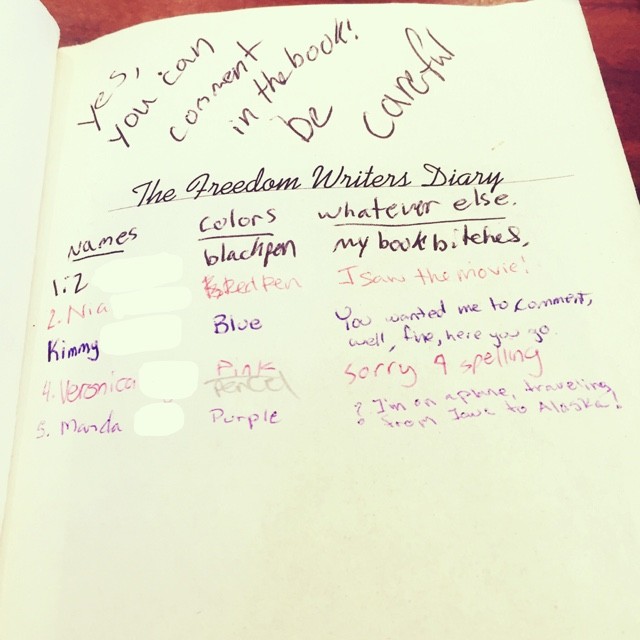 yes,
you can
comment
in the book!
be
careful
The Freedom Writers Diary
Names Colors whatever else.
1. Z black pen my book bitches,
2. Nia Red Pen I saw the movie!
Kimmy Blue You wanted me to comment,
well, fine, here you go.
4. Veronica Pink sorry 4 spelling
Pencil
5. Manda Purple I'm on a plane, traveling
from Iowa to Alaska!